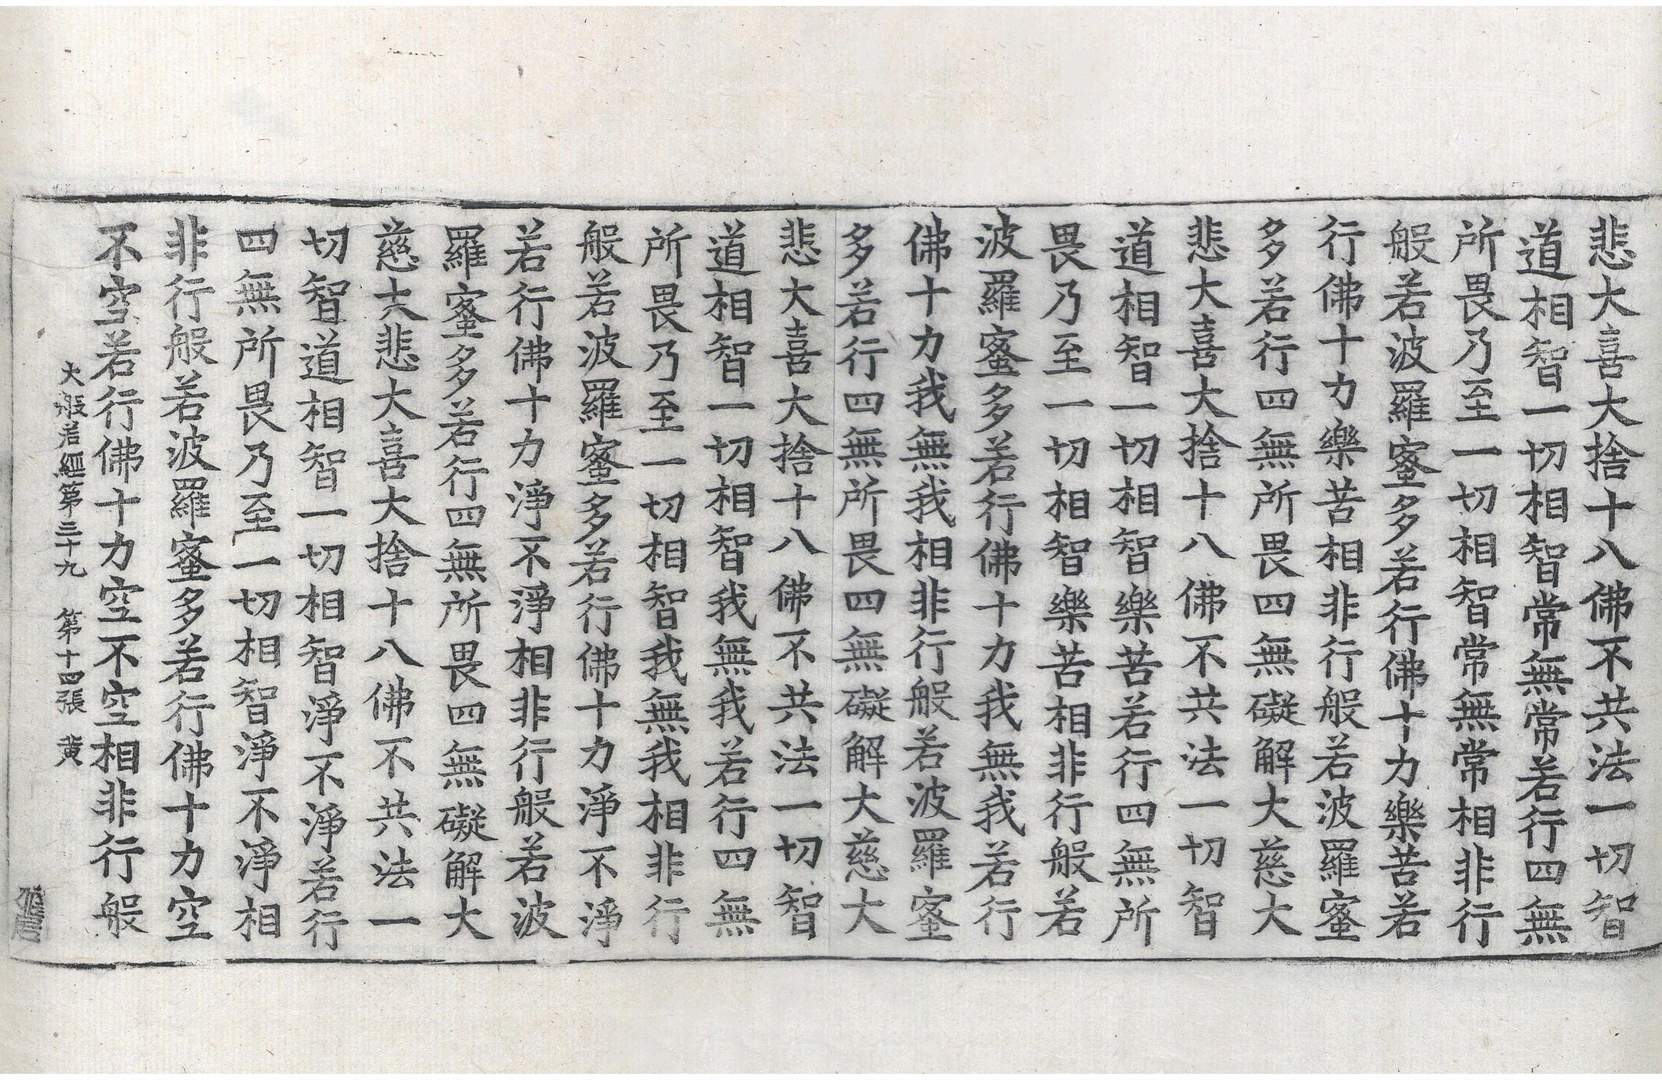 悲大喜大捨十八佛不共法一切智
道相智一切相智常無常若行四無
所畏乃至一切相智常無常相非行
般若波羅蜜多若行佛十力樂苦若
行佛十力樂苦相非行般若波羅蜜
多若行四無所畏四無礙解大慈大
悲大喜大捨十八佛不共法一切智
道相智一切相智樂苦若行四無所
畏乃至一切相智樂苦相非行般若
波羅蜜多若行佛十力我無我若行
佛十力我無我相非行般若波羅蜜
多若行四無所畏四無礙解大慈大
悲大喜大捨十八佛不共法一切智
道相智一切相智我無我若行四無
所畏乃至一切相智我無我相非行
般若波羅蜜多若行佛十力淨不淨
若行佛十力淨不淨相非行般若波
羅蜜多若行四無所畏四無礙解大
慈大悲大喜大捨十八佛不共法一
切智道相智一切相智淨不淨若行
四無所畏乃至一切相智淨不淨相
非行般若波羅蜜多若行佛十力空
不空若行佛十力空不空相非行般
大般若經第三十九 第十四張 黃